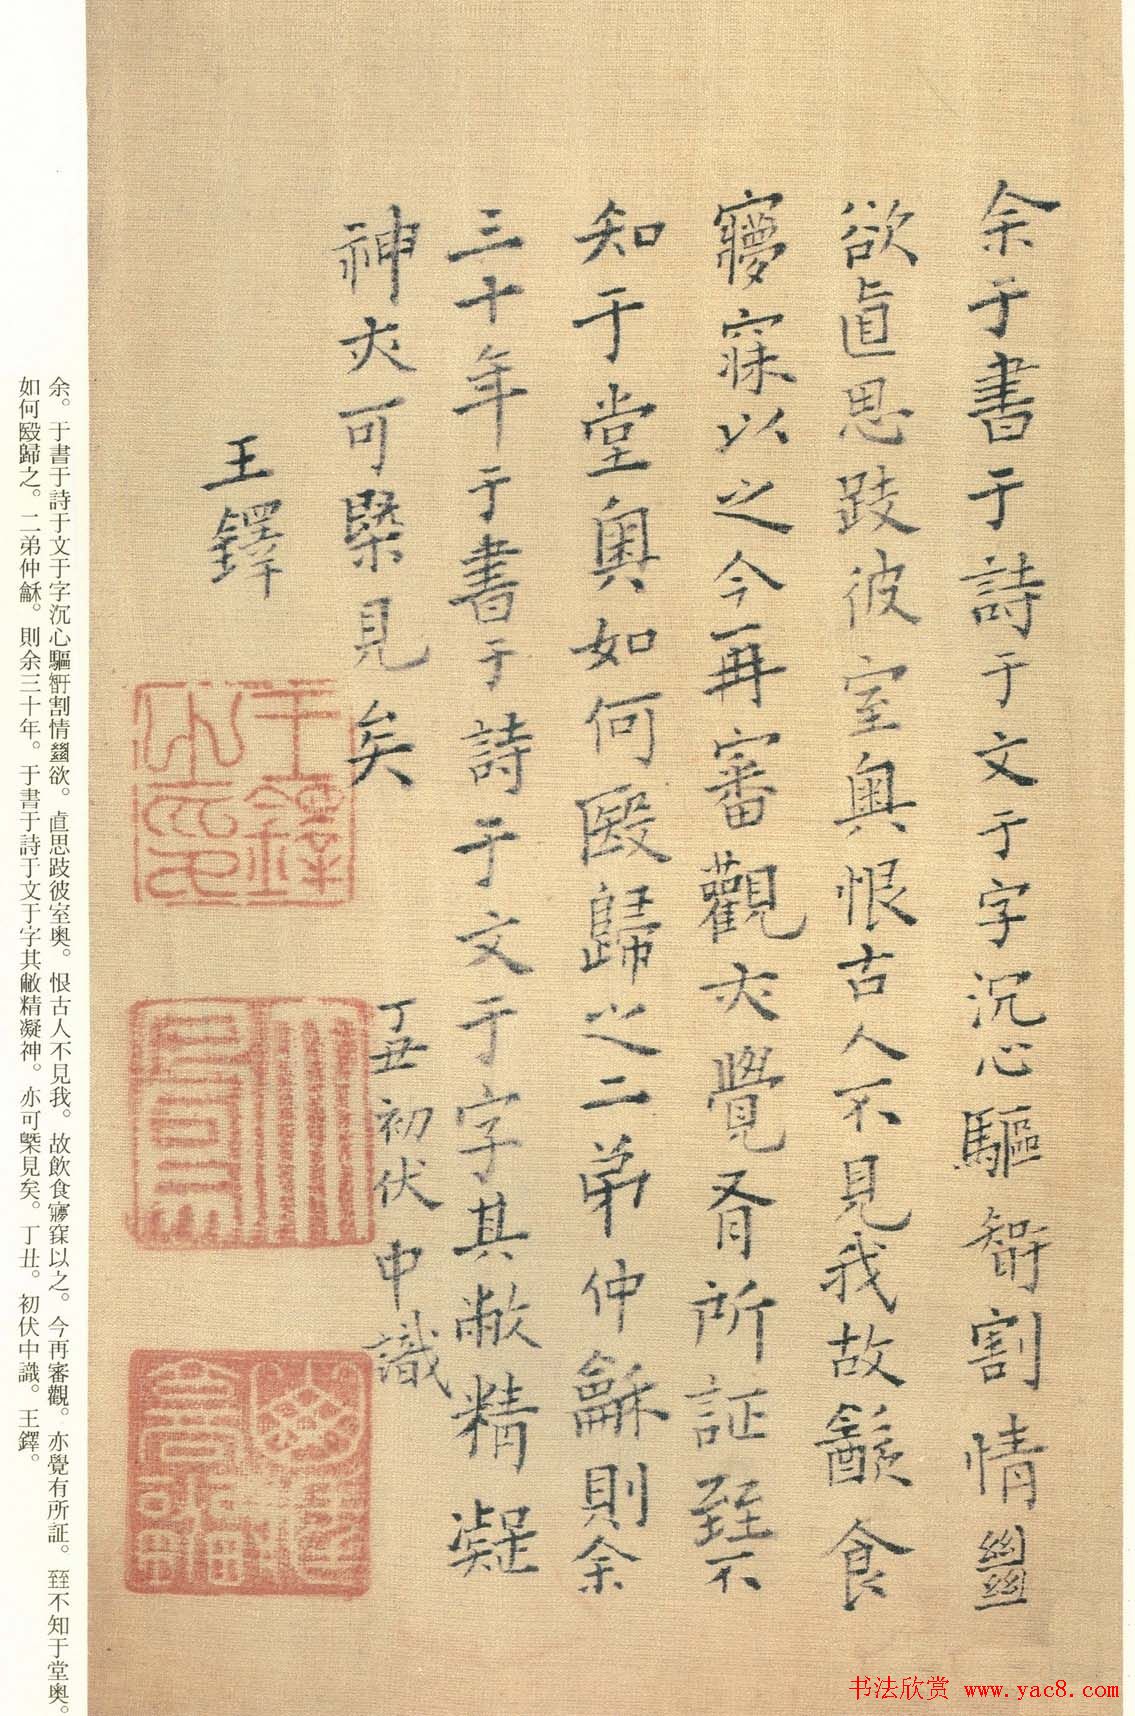 余于書于詩于文于字沉心驅智割情㡭
欲直思跂彼室奧恨古人不見我故飲食
寢寐以之今再審觀亦覺有所証至不
知于堂奧如何殹歸之二弟仲龢則余
三十年于書于詩于文于字其敝精凝
神亦可槩見矣
丁丑初伏中識
王鐸
余。于書于詩于文于字沉心驅智割情㡭欲。直思跂彼室奧。恨古人不見我。故飲食寢寐以之。今再審觀。亦覺有所証。至不知于堂奧。
如何殹歸之。二弟仲龢。則余三十年。于書于詩于文于字其敝精凝神。亦可槩見矣。丁丑。初伏中識。王鐸。
书法欣赏 www.yac8.com